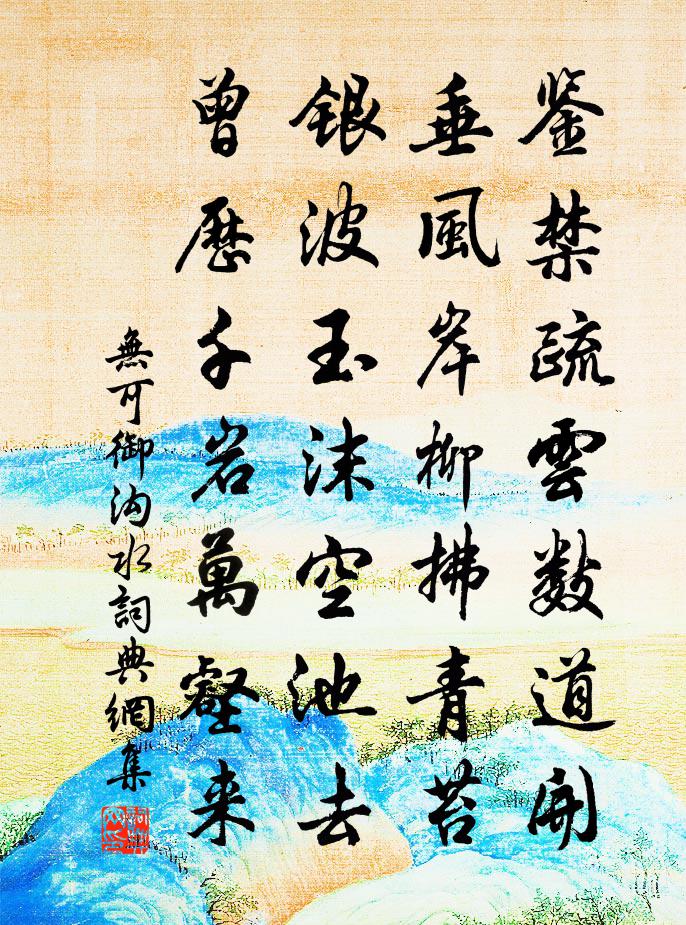 鑿禁疏雲數道開
垂風岸柳拂青苔
銀波玉沫空池去
曾歷千岩萬壑来
無可御沟水詞典網集